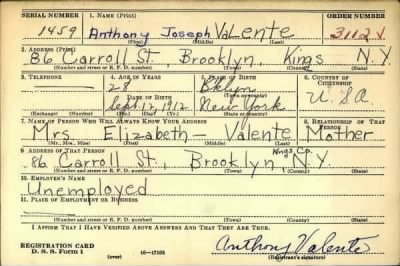 SERIAL NUMBER 1. NAME (Print) ORDER NUMBER
1459 Anthony Joseph Valente
(First) (Middle) (Last)
2. ADDRESS (Print)
86 Carroll St., Brooklyn, Kings N.Y.
(Number and street or R. F. D. number) (Town) (County) (State)
3. TELEPHONE 4. AGE IN YEARS 5. PLACE OF BIRTH 6. COUNTRY OF CITIZENSHIP
28 Bklyn
DATE OF BIRTH (Town or county)
Sept. 12, 1912 New York U.S.A
(Exchange) (Number) (Mo.) (Day) (Yr.) (State or country)
7. NAME OF PERSON WHO WILL ALWAYS KNOW YOUR ADDRESS 8. RELATIONSHIP OF THAT PERSON
Mrs. Elizabeth — Valente Mother
(Mr., Mrs., Miss) (First) (Middle) (Last)
9. ADDRESS OF THAT PERSON
Kings Co.
86 Carroll St., Brooklyn, N.Y.
(Number and street or R. F. D. number) (Town) (County) (State)
10. EMPLOYER'S NAME
Unemployed
11. PLACE OF EMPLOYMENT OR BUSINESS
(Number and street or R. F. D. number) (Town) (County) (State)
I AFFIRM THAT I HAVE VERIFIED ABOVE ANSWERS AND THAT THEY ARE TRUE.
REGISTRATION CARD
D. S. S. Form 1 (over) 16—17105
Anthony Valente
(Registrant's signature)